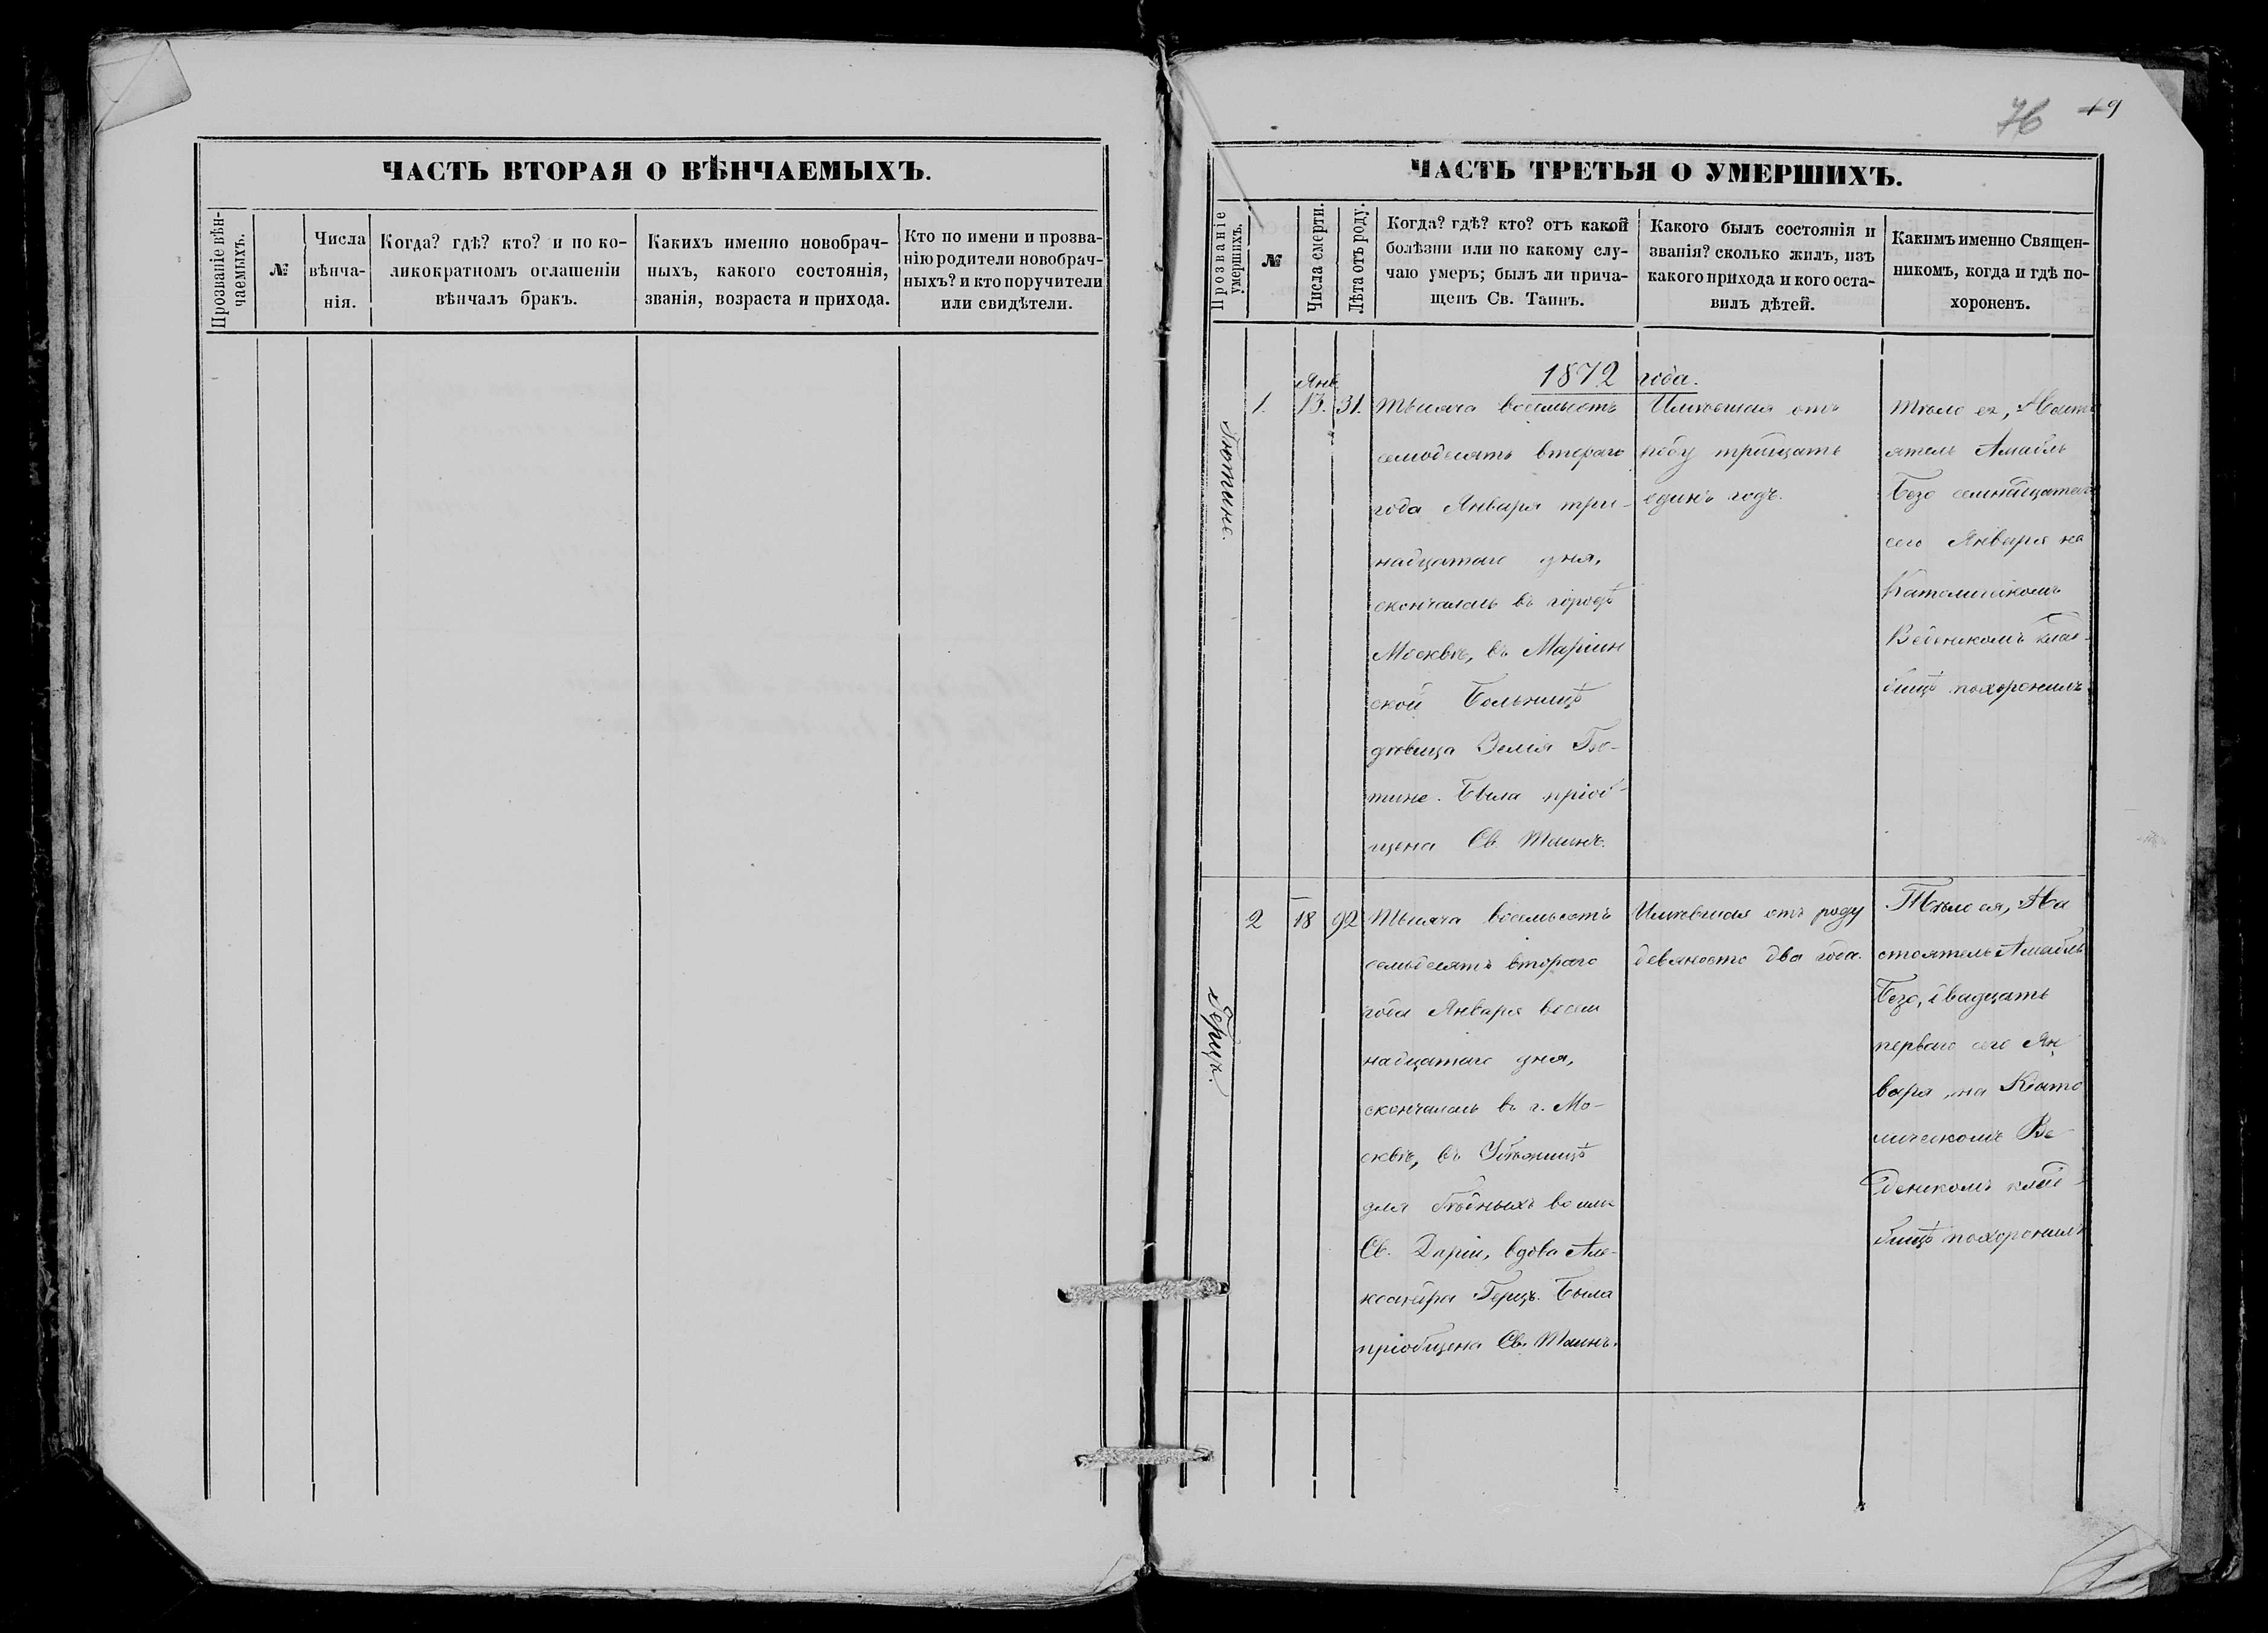 ЧАСТЬ ВТОРАЯ О ВѢНЧАЕМЫХЪ.
Прозваніе вѣн-
чаемыхъ.
№
Числа
вѣнча-
нія.
Когда? гдѣ? кто? и по ко-
ликократномъ оглашеніи
вѣнчалъ бракъ.
Какихъ именно новобрач-
ныхъ, какого состоянія,
званія, возраста и прихода.
Кто по имени и прозва-
нію родители новобрач-
ныхъ? и кто поручители
или свидѣтели.
76 49
ЧАСТЬ ТРЕТЬЯ О УМЕРШИХЪ.
Прозваніе
умершихъ.
№
Числа смерти.
Лѣта отъ роду.
Когда? гдѣ? кто? отъ какой
болѣзни или по какому слу-
чаю умеръ; былъ ли прича-
щенъ Св. Таинъ.
Какого былъ состоянія и
званія? сколько жилъ, изъ
какого прихода и кого оста-
вилъ дѣтей.
Какимъ именно Священ-
никомъ, когда и гдѣ по-
хороненъ.
1872 года.
Янв.
1.
13.
31.
Тысяча восемьсотъ
семьдесятъ втораго
года Января три-
надцатаго дня,
скончалась въ городѣ
Москвѣ, въ Маріин
ской Больницѣ
дѣвица
тине. Была пріоб-
щена Св. Таинъ.
Имѣвшая отъ
роду тридцать
одинъ годъ.
Тѣло ея, Насто
ятель Амабль
Безо семнадцатаго
сего Января на
Католическомъ
Веденскомъ клад-
бищѣ похоронилъ
2
18
92
Тысяча восемьсотъ
семьдесятъ втораго
года Января восем
надцатаго дня,
скончалась въ г. Мо-
сквѣ, въ Убѣжищѣ
для бѣдныхъ во имя
Св. Даріи, вдова Але-
ксандра Герцъ. Была
пріобщена Св. Таинъ.
Герцъ.
Имѣвшая отъ роду
девяносто два года.
Тѣло ея, На
стоятель Амабль
Безо, двадцать
перваго сего Ян
варя, на Като
лическомъ Ве-
денскомъ клад-
бищѣ похоронилъ